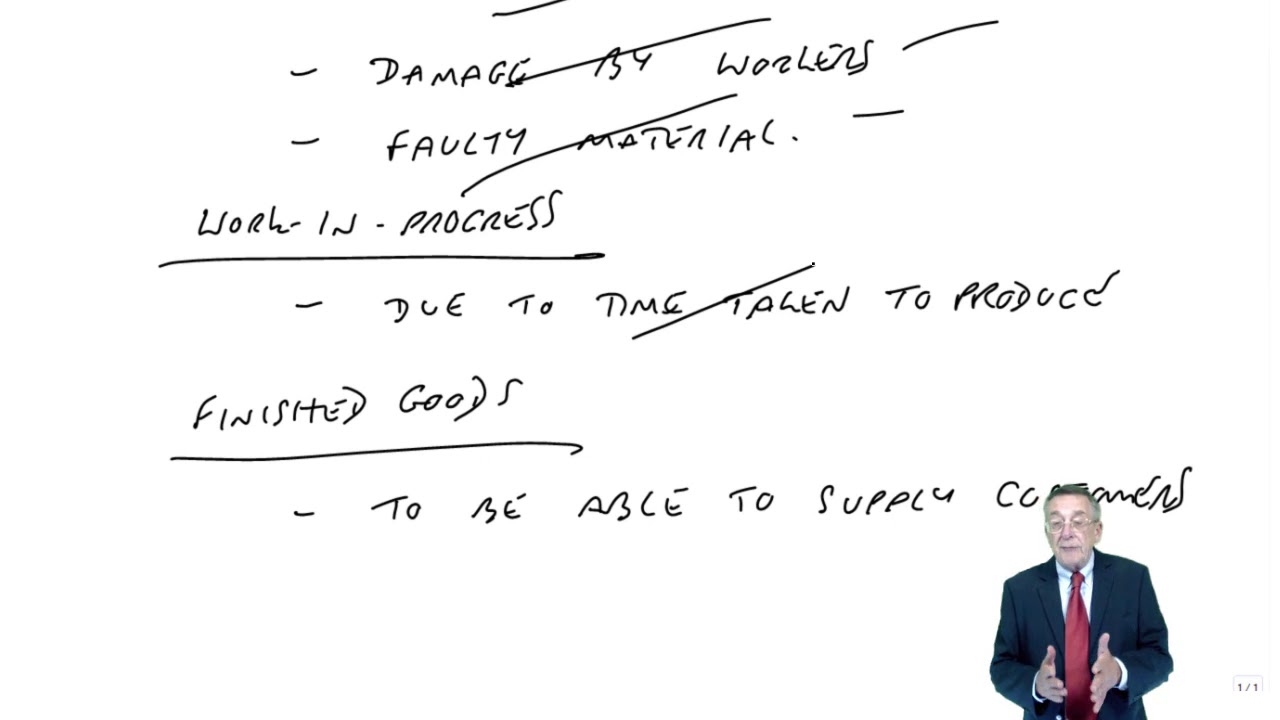 - DAMAGE BY WORKERS
- FAULTY MATERIAL.
WORK-IN-PROGRESS
- DUE TO TIME TAKEN TO PRODUCE
FINISHED GOODS
- TO BE ABLE TO SUPPLY CUSTOMERS
1/1